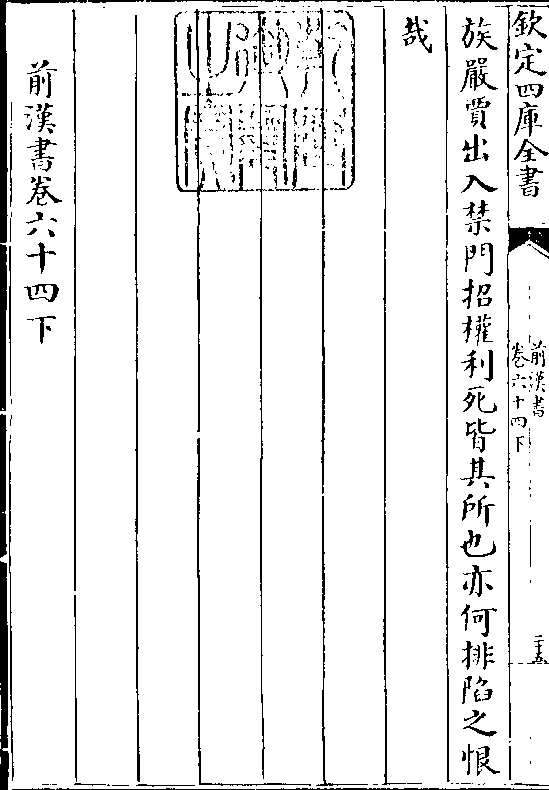 欽定四庫全書
前漢書
卷六十四下
二十五
族嚴賈出入禁門招權利死皆其所也亦何排陷之恨
哉
前漢書卷六十四下